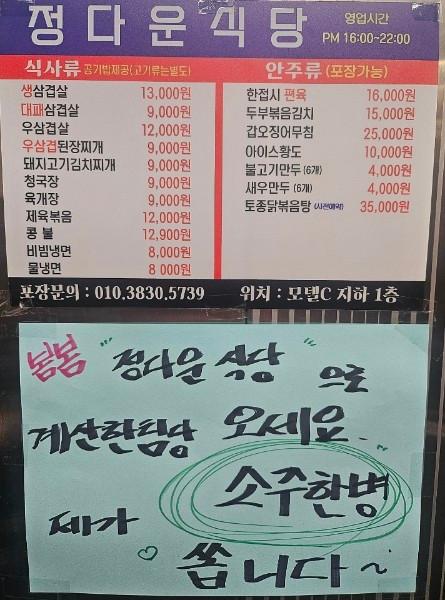 정다운식당
영업시간
PM 16:00~22:00
식사류 공기밥제공(고기류는별도)
생삼겹살 13,000원
대패삼겹살 9,000원
우삼겹살 12,000원
우삼겹된장찌개 9,000원
돼지고기김치찌개 9,000원
청국장 9,000원
육개장 9,000원
제육볶음 12,000원
콩불 12,900원
비빔냉면 8,000원
물냉면 8 000원
안주류 (포장가능)
한접시 편육 16,000원
두부볶음김치 15,000원
갑오징어무침 25,000원
아이스황도 10,000원
불고기만두 (6개) 4,000원
새우만두 (6개) 4,000원
토종닭볶음탕 (사전예약) 35,000원
포장문의 : 010.3830.5739 위치 : 모텔C 지하 1층
봄봄 "정다운 식당" 으로
계산한팀당 오세요.
소주한병
제가
♡ 쏩니다~